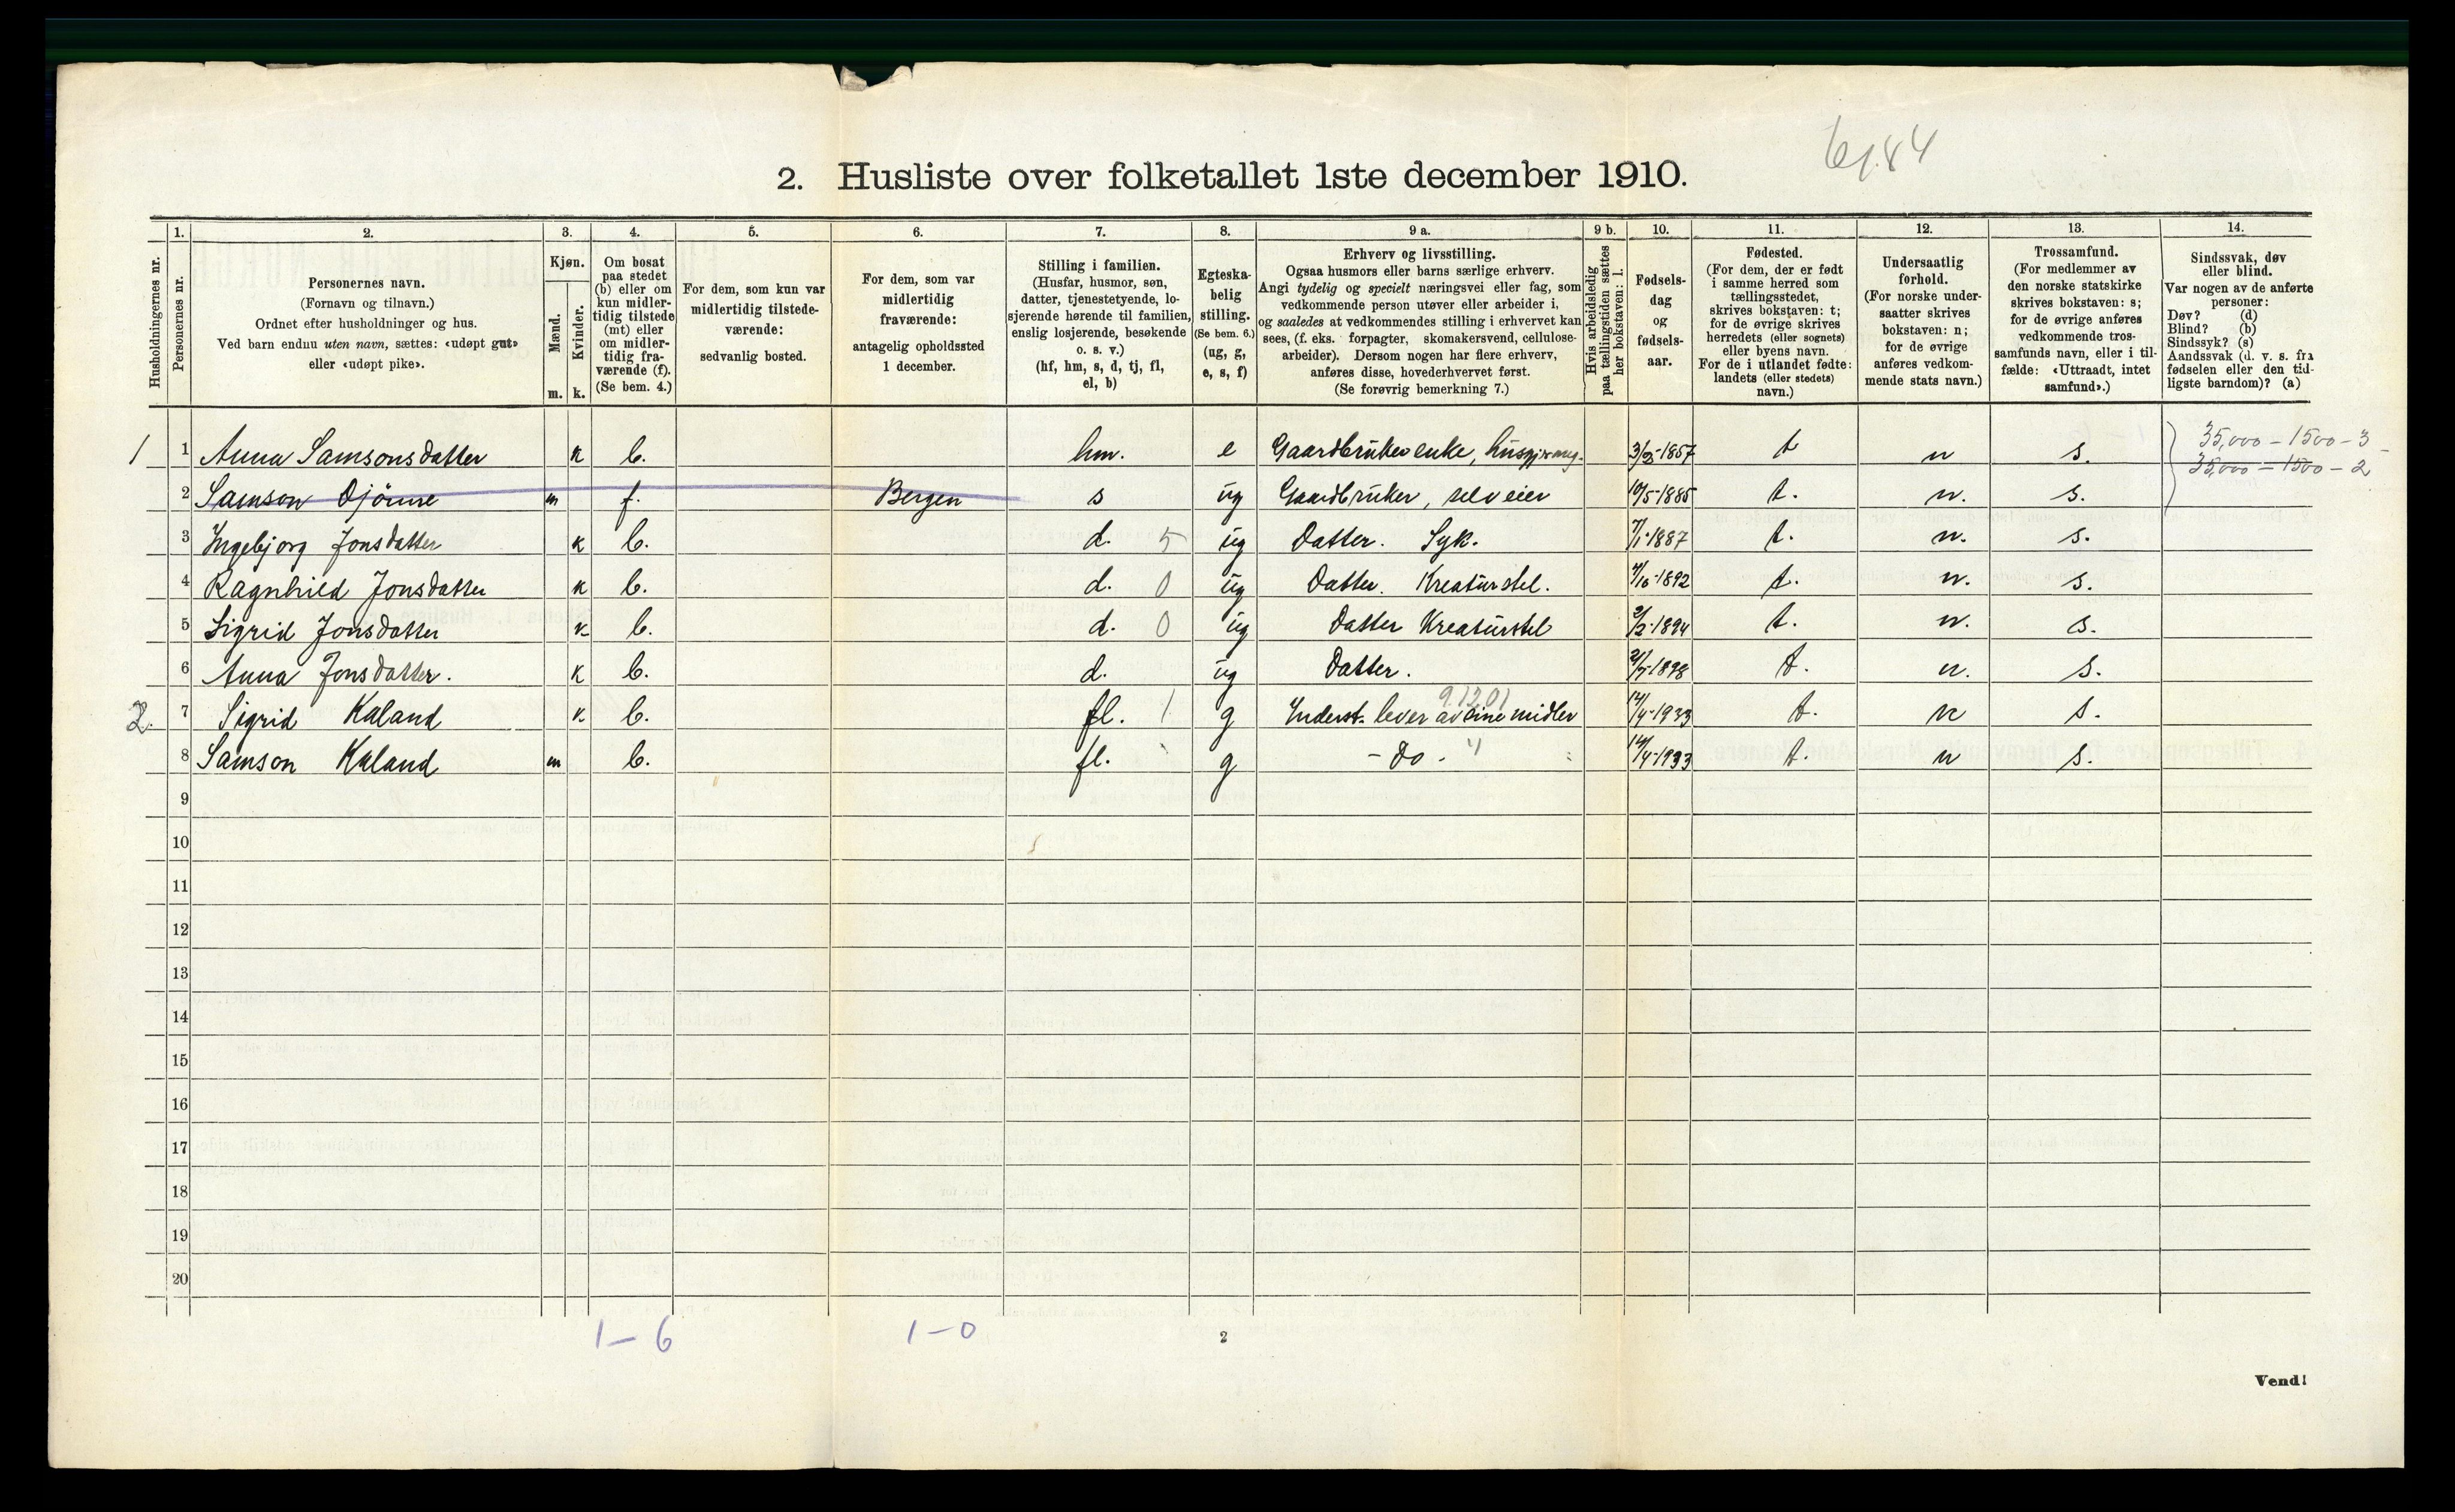 2. Husliste over folketallet 1ste december 1910.
Husholdningernes nr.
1.
Personernes nr.
2.
Personernes navn.
(Fornavn og tilnavn.)
Ordnet efter husholdninger og hus.
Ved barn endnu uten navn, sættes: «udøpt gut»
eller «udøpt pike».
3.
Kjøn.
Mænd.
Kvinder.
m. k.
4.
Om bosat
paa stedet
(b) eller om
kun midler-
tidig tilstede
(mt) eller
om midler-
tidig fra-
værende (f).
(Se bem. 4.)
5.
For dem, som kun var
midlertidig tilstede-
værende:
sedvanlig bosted.
6.
For dem, som var
midlertidig
fraværende:
antagelig opholdssted
1 december.
7.
Stilling i familien.
(Husfar, husmor, søn,
datter, tjenestetyende, lo-
sjerende hørende til familien,
enslig losjerende, besøkende
o. s. v.)
(hf, hm, s, d, tj, fl,
el, b)
8.
Egteska-
belig
stilling.
(Se bem. 6.)
(ug, g,
e, s, f)
9 a.
Erhverv og livsstilling.
Ogsaa husmors eller barns særlige erhverv.
Angi tydelig og specielt næringsvei eller fag, som
vedkommende person utøver eller arbeider i,
og saaledes at vedkommendes stilling i erhvervet kan
sees, (f. eks. forpagter, skomakersvend, cellulose-
arbeider). Dersom nogen har flere erhverv,
anføres disse, hovederhvervet først.
(Se forøvrig bemerkning 7.)
9 b.
Hvis arbeidsledig
paa tællingstiden sættes
her bokstaven: l.
10.
Fødsels-
dag
og
fødsels-
aar.
11.
Fødested.
(For dem, der er født
i samme herred som
tællingsstedet,
skrives bokstaven: t;
for de øvrige skrives
herredets (eller sognets)
eller byens navn.
For de i utlandet fødte:
landets (eller stedets)
navn.)
12.
Undersaatlig
forhold.
(For norske under-
saatter skrives
bokstaven: n;
for de øvrige
anføres vedkom-
mende stats navn.)
13.
Trossamfund.
(For medlemmer av
den norske statskirke
skrives bokstaven: s;
for de øvrige anføres
vedkommende tros-
samfunds navn, eller i til-
fælde: «Uttraadt, intet
samfund».)
14.
Sindssvak, døv
eller blind.
Var nogen av de anførte
personer:
Døv? (d)
Blind? (b)
Sindssyk? (s)
Aandssvak (d. v. s. fra
fødselen eller den tid-
ligste barndom)? (a)
1 1 Anna Samsonsdatter k b. hm. e Gaardbrukerenke, -1857 t n s. 35,000 - 1500 - 3
35,000 - 1500 - 2
2 Samson Djönne m f. Bergen s ug Gaardbruker, selveier 10/5-1885 t. n. s.
3 Ingebjorg Jonsdatter k b. d. 5 ug Datter. Syk. 7/1-1887 t. n. s.
4 Ragnhild Jonsdatter k b. d. 0 ug Datter. Kreaturstel. /10-1892 t. n. s.
5 Sigrid Jonsdatter k b. d. 0 ug Datter Kreaturstel 2/2-1894 t. n. s.
6 Anna Jonsdatter. k b. d. ug Datter. -1898 t. n. s.
9.12.01
2. 7 Sigrid Kaland k b. fl. 1 g Inderst. lever av sine midler 14/4-1933 t. n s.
8 Samson Kaland m b. fl. g - Do - " 14/4-1933 t. n s.
9
10
11
12
13
14
15
16
17
18
19
20
1 - 6 1 - 0
2
Vend!